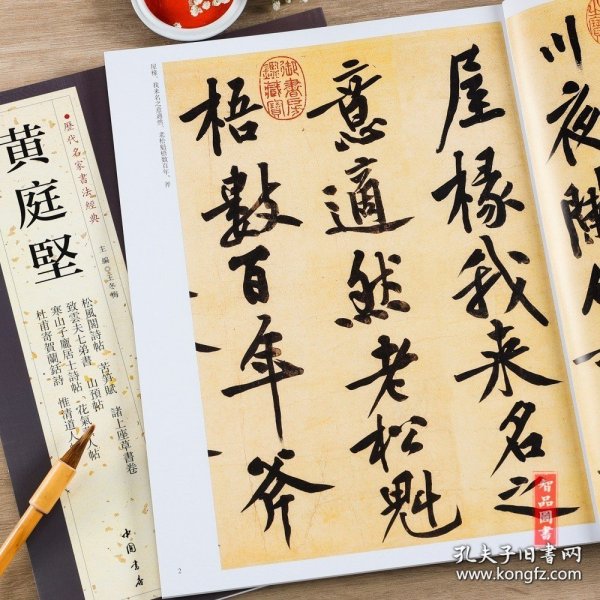 川夜陳
屋椽我来名之
意適然老松魁
梧數百年斧
御書房鑒藏寶
屋椽，我来名之意適然。老松魁梧數百年，斧
2
歷代名家書法經典
黄庭堅
主編 王冬梅
松風閣詩帖 苦筍賦 諸上座草書卷
致雲夫七弟書 山預帖
寒山子龐居士詩帖 花氣 人帖
杜甫寄賀蘭銛詩 惟清道人
中國書店
智品圖書
孔夫子旧書网
www.kongfz.com